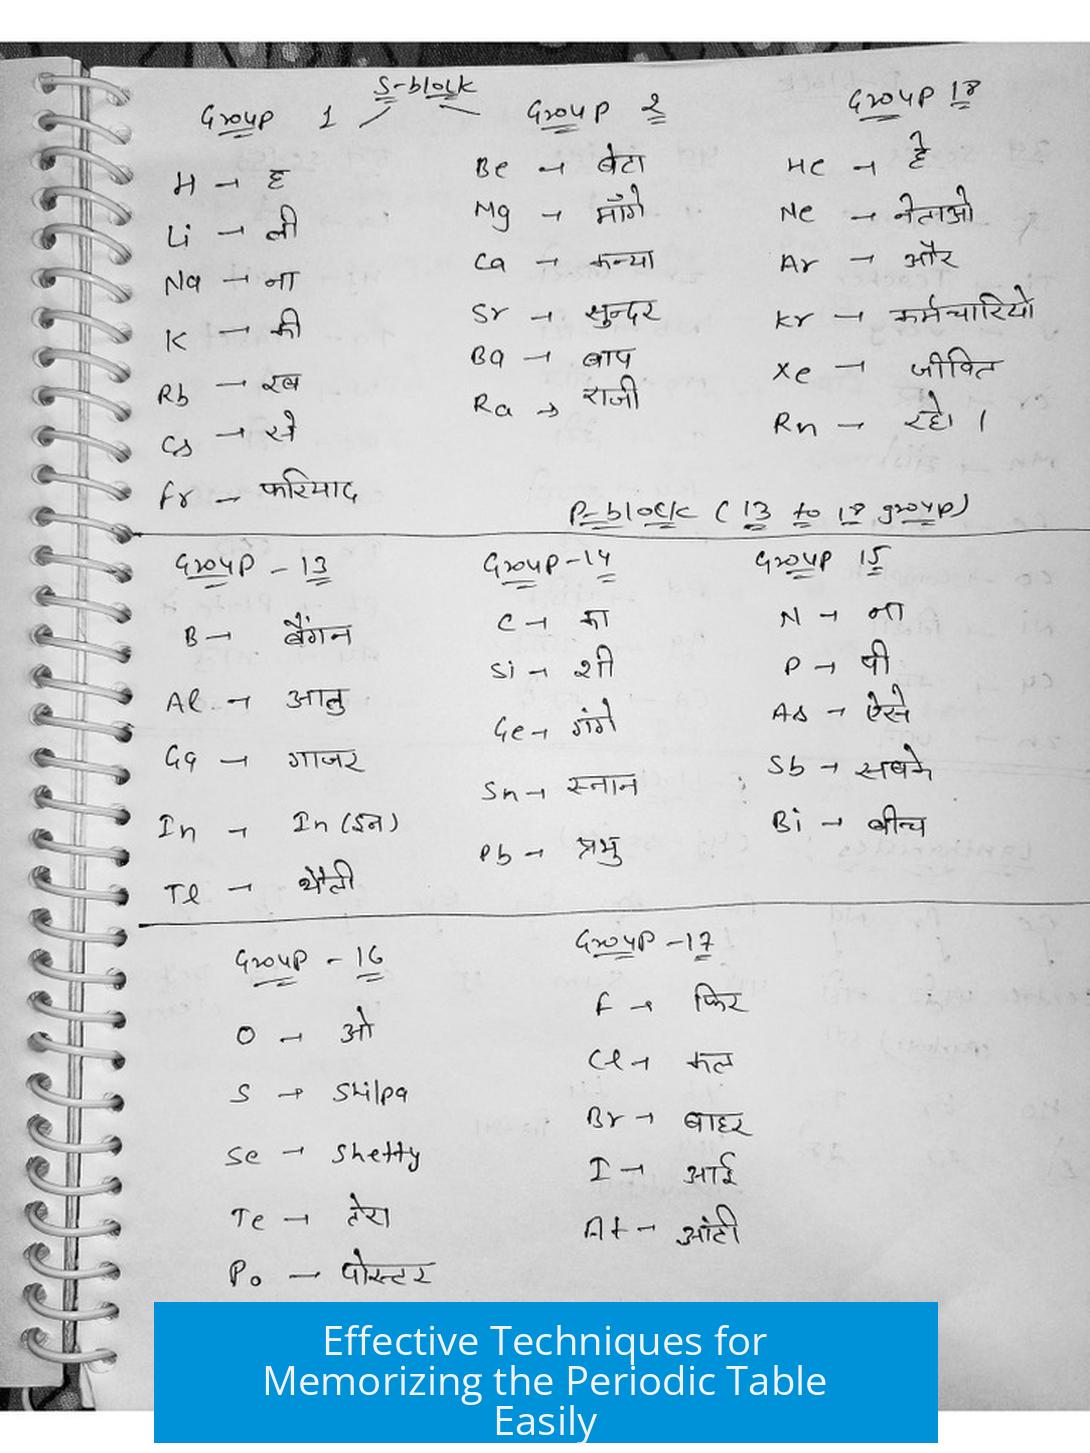 S-block
Group 1
H → ह
Li → ली
Na → ना
K → की
Rb → रब
Cs → से
Fr → फरियाद
Group 2
Be → बेटा
Mg → माँगे
Ca → कन्या
Sr → सुन्दर
Ba → बाप
Ra → राजी
Group 18
He → हे
Ne → नेताओ
Ar → और
Kr → कर्मचारियो
Xe → जीवित
Rn → रहो।
P-block (13 to 18 group)
Group - 13
B → बैंगन
Al → आलु
Ga → गाजर
In → In (इन)
Tl → थैली
Group-14
C → का
Si → शी
Ge → गंगे
Sn → स्नान
Pb → प्रभु
Group 15
N → ना
P → पी
As → ऐसे
Sb → सबके
Bi → बीच
Group - 16
O → ओ
S → Shilpa
Se → Shetty
Te → तेरा
Po → पोस्टर
Group -17
F → फिर
Cl → कल
Br → बाहर
I → आई
At → आंटी
Effective Techniques for
Memorizing the Periodic Table
Easily